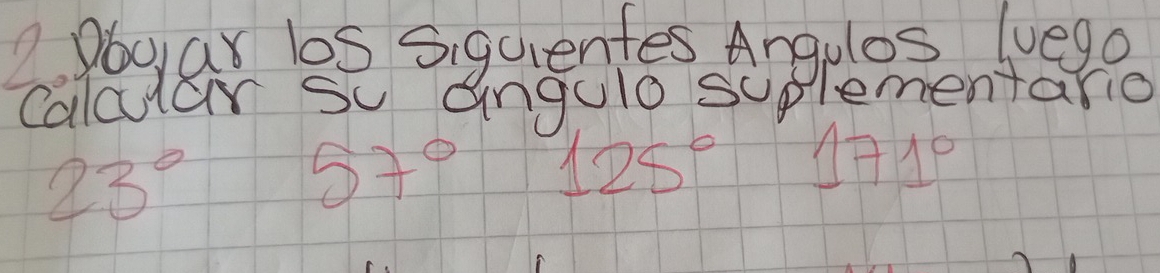 2. Dbujar los Siguientes Angulos luego
Calcular su ángulo suplementario
23° 57° 125° 171°